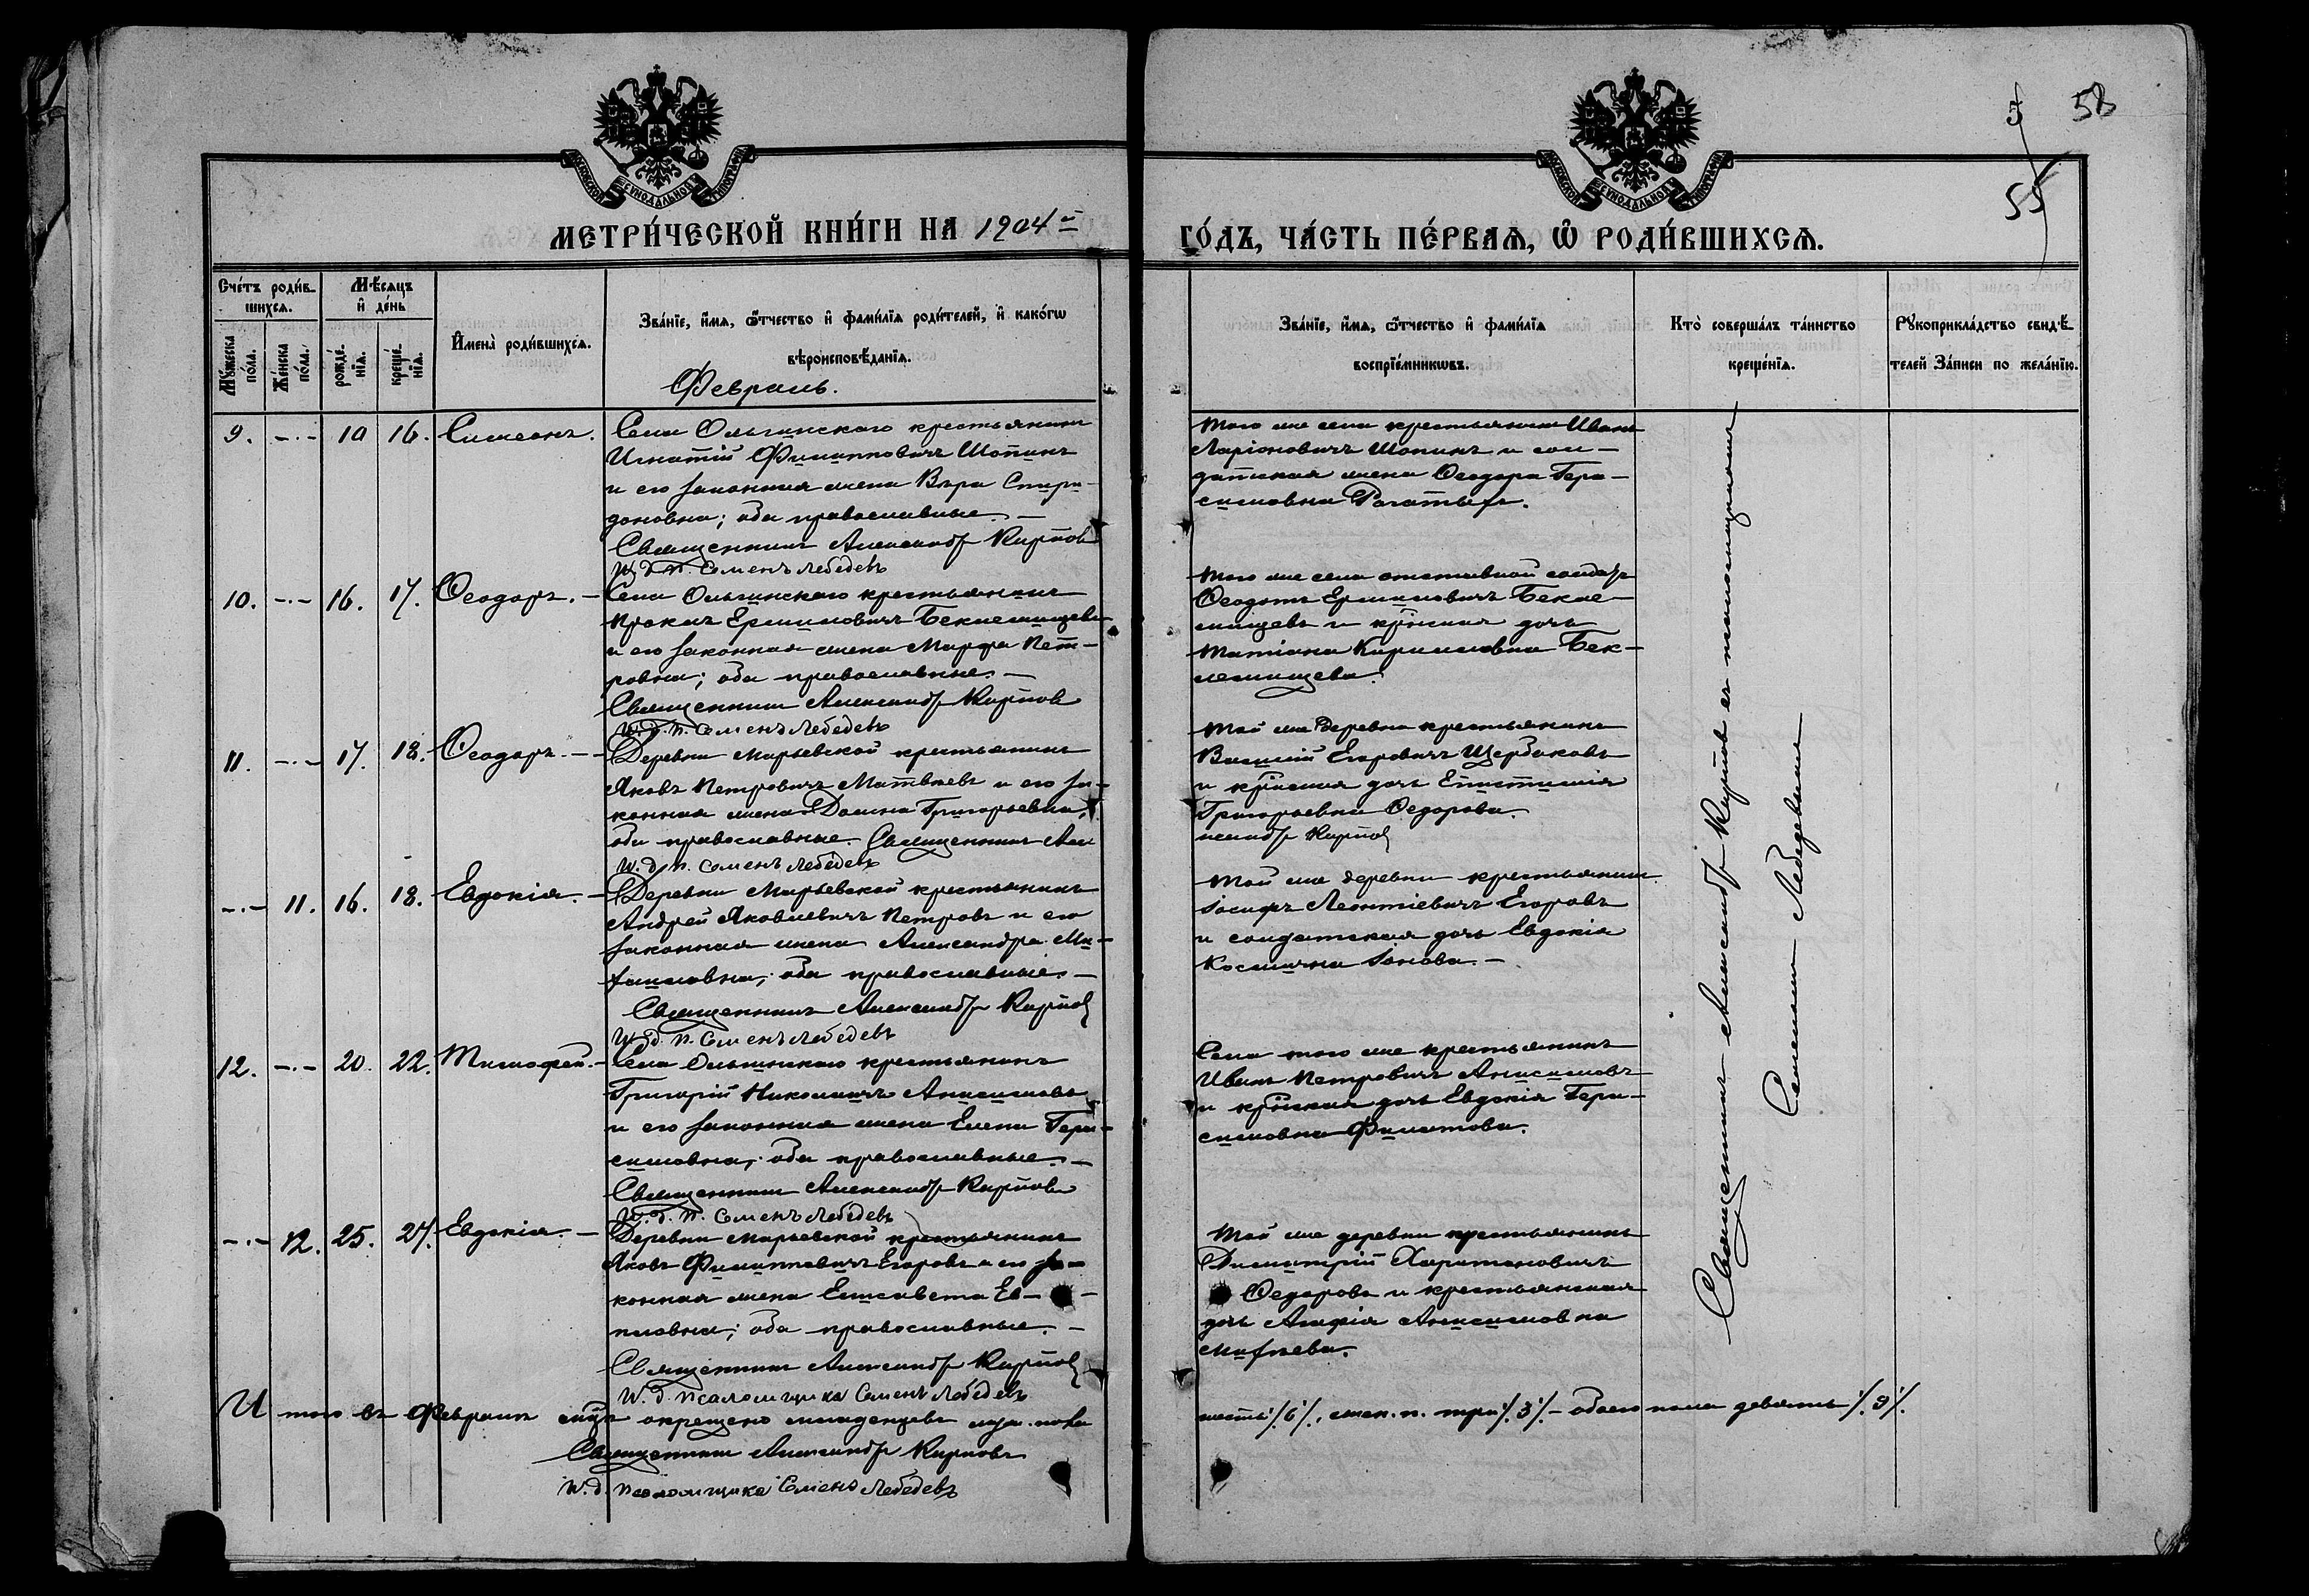 5
58
55
МОСКОВСКОЙ СѴНОДАЛЬНОЙ ТИПОГРАФІИ
МОСКОВСКОЙ СѴНОДАЛЬНОЙ ТИПОГРАФІИ
МЕТРИ́ЧЕСКОЙ КНИ́ГИ НА 1904й
ГО́ДЪ, ЧА́СТЬ ПЕ́РВАѦ, Ѽ РОДИ́ВШИХСѦ.
Сче́тъ роди́в-
шихсѧ.
Мѣ́сѧцъ
и҆ де́нь
Мꙋ́жеска по́ла.
Же́нска по́ла.
рожде́-нїѧ.
креще́-нїѧ.
И҆мена̀ роди́вшихсѧ.
Зва́нїе, и҆́мѧ, ѻ҆́тчество и҆ фами́лїѧ роди́телей, и҆ како́гѡ
вѣроисповѣ́данїѧ.
Зва́нїе, и҆́мѧ, ѻ҆́тчество и҆ фами́лїѧ
воспрїе́мникѡвъ.
Кто̀ соверша́лъ та́инство
креще́нїѧ.
Рꙋкоприкла́дство свидѣ́-
телей за́писи по жела́нїю.
Февраль.
9. -·- 10 16. Симеонъ.
Села Ольгинскаго крестьянинъ
Игнатій Филипповичъ Шопинъ
и его законная жена Вѣра Спири-
доновна; оба православные. —
Священникъ Александръ Карповъ
И. д. п. Семенъ Лебедевъ
Того же села крестьянинъ Иванъ
Ларіоновичъ Шопинъ и сол-
датская жена Ѳеодора Гера-
симовна Рогатыхъ.
10. -·- 16. 17. Ѳеодоръ. -
Села Ольгинскаго крестьянинъ
Ермиловичъ Беклемищевъ
и его законная жена Марфа Пет-
ровна; оба православные. —
Священникъ Александръ Карповъ
И. д. п. Семенъ Лебедевъ
Того же села отставной солдатъ
Ѳеодотъ Ермиловичъ Бекле-
мищевъ и кр̃нская дочь
Татіана Кирилловна Бек-
лемищева.
11. -·- 17. 18. Ѳеодоръ. - -
Деревни Марьевской крестьянинъ
Яковъ Петровичъ Матвѣевъ и его за-
конная жена Домна Григорьевна,
оба православные. Священникъ Алек-
сандръ Карповъ
И. д. п. Семенъ Лебедевъ
Той же деревни крестьянинъ
Василій Егоровичъ Щербаковъ
и кр̃нская дочь Епистимія
Григорьевна Ѳедорова.
-·- 11. 16. 18. Евдокія. -
Деревни Марьевской крестьянинъ
Андрей Яковлевичъ Петровъ и его
законная жена Александра Ми-
хаиловна; оба православные. —
Священникъ Александръ Карповъ
И. д. п. Семенъ Лебедевъ
Той же деревни крестьянинъ
Іосифъ Леонтіевичъ Егоровъ
и солдатская дочь Евдокія
Космична Іонова. —
12. -·- 20. 22. Тимофей. -
Села Ольгинскаго крестьянинъ
Григорій Николаичъ Анисимовъ
и его законная жена Елена Гера-
симовна; оба православные. —
Священникъ Александръ Карповъ
И. д. п. Семенъ Лебедевъ
Села того же крестьянинъ
Иванъ Петровичъ Анисимовъ
и кр̃нская дочь Евдокія Гера-
симовна Филатова.
-·- 12. 25. 27. Евдокія. -
Деревни Марьевской крестьянинъ
Яковъ Филипповичъ Егоровъ и его за-
конная жена Елисавета Ев-
пловна; оба православные. —
Священникъ Александръ Карповъ
И. д. псаломщика Семенъ Лебедевъ
Той же деревни крестьянинъ
Димитрій Харитоновичъ
Ѳедоровъ и крестьянская
дочь Агафія Анисимовна
Священникъ Александръ Карповъ съ псаломщикомъ
Семеномъ Лебедевымъ
Итого въ Февралѣ мцѣ окрещено младенцевъ муж. пола
шесть ./.6./., жен. п. три ./.3./. — обоего пола девять ./.9./.
Священникъ Александръ Карповъ
И. д. псаломщика Семенъ Лебедевъ